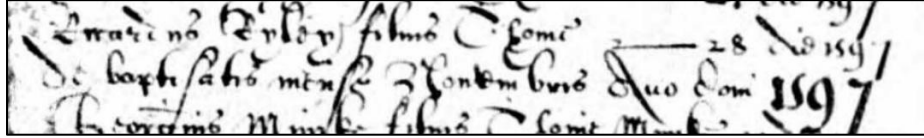 Ricardus Ryley filius Thome 28 die 1597
de baptisatis mense Novembris Anno Domi 1597
Georgius filius Thome